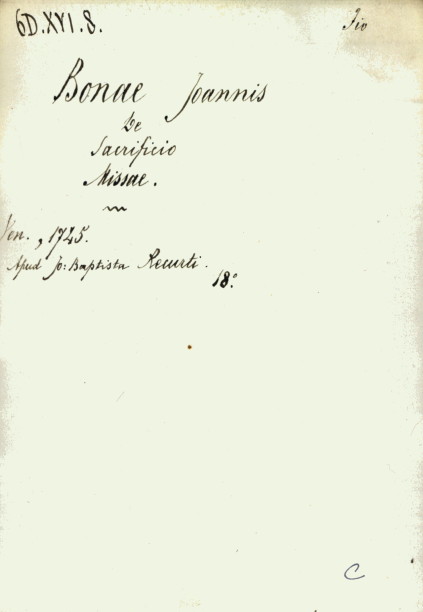 6D.XVI.8.
Fio
Bonae Joannis
De
Sacrificio
Missae.
Ven., 1745.
Apud Jo: Baptista Recurti.
18º
C